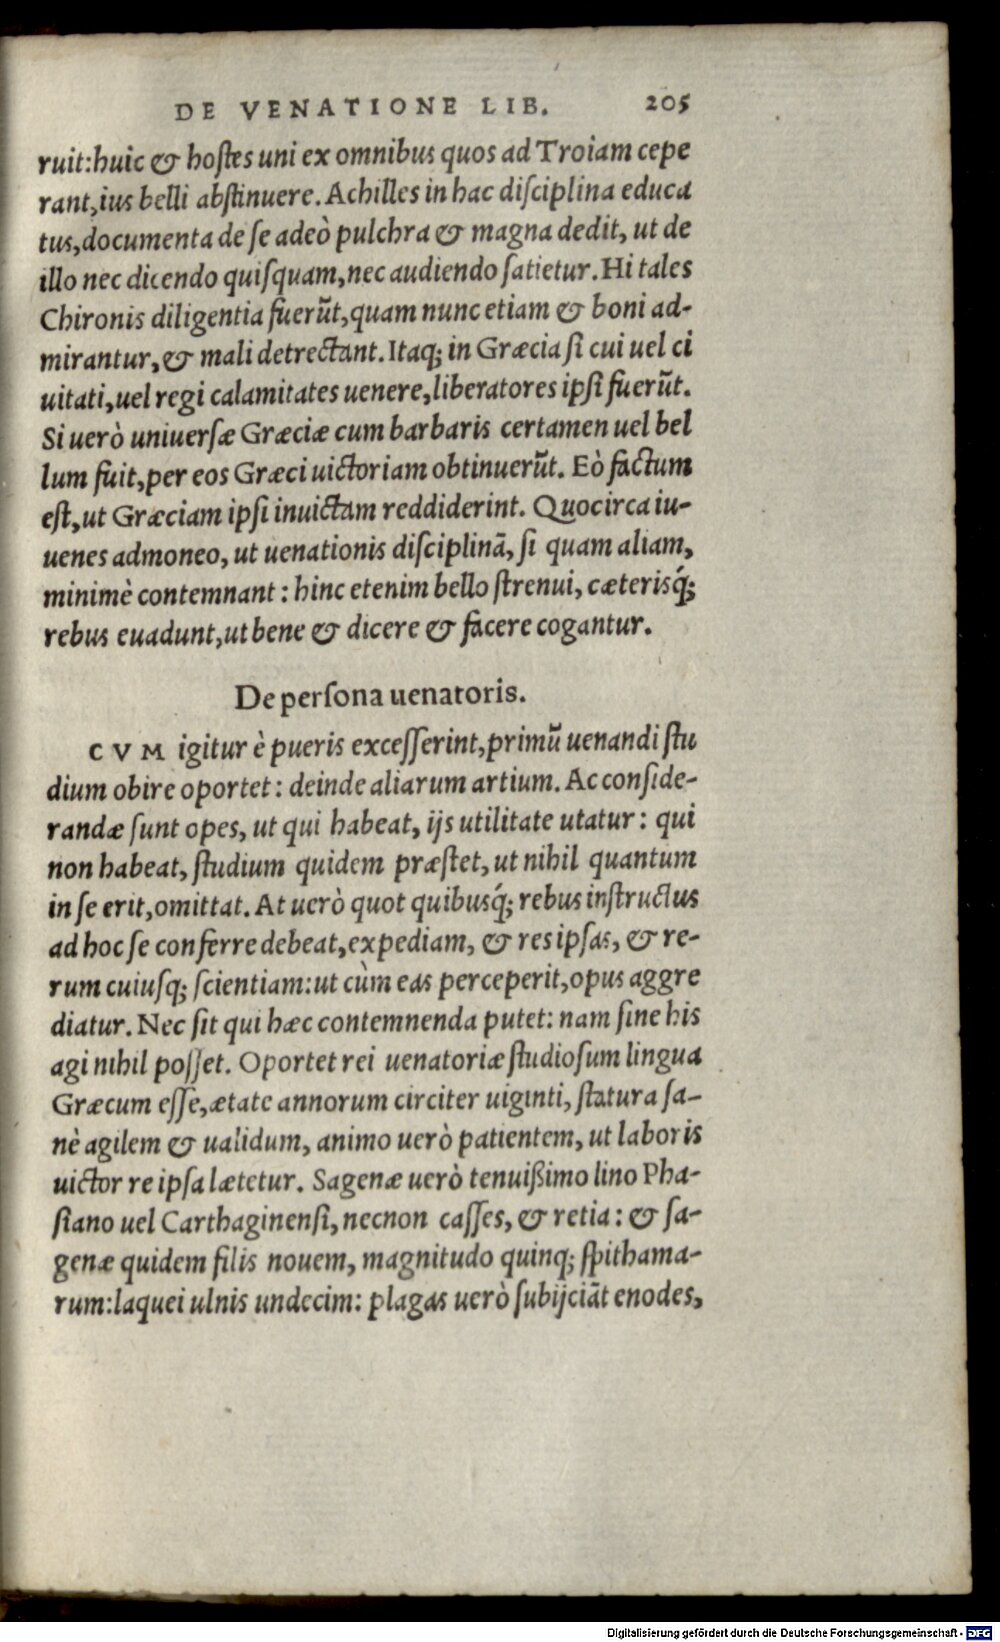 DE VENATIONE LIB. 205
ruit:huic & hoſtes uni ex omnibus quos ad Troiam cepe
rant,ius belli abſtinuere. Achilles in hac diſciplina educa
tus,documenta de ſe adeò pulchra & magna dedit, ut de
illo nec dicendo quiſquam,nec audiendo ſatietur. Hi tales
Chironis diligentia fuerūt,quam nunc etiam & boni ad-
mirantur,& mali detrectant. Itaq; in Græcia ſi cui uel ci
uitati,uel regi calamitates uenere,liberatores ipſi fuerūt.
Si uerò uniuerſæ Græciæ cum barbaris certamen uel bel
lum fuit,per eos Græci uictoriam obtinuerūt. Eò factum
eſt,ut Græciam ipſi inuictam reddiderint. Quocirca iu-
uenes admoneo, ut uenationis diſciplinā, ſi quam aliam,
minimè contemnant : hinc etenim bello ſtrenui, cæterisq́;
rebus euadunt,ut bene & dicere & facere cogantur.
De perſona uenatoris.
CVM igitur è pueris exceſſerint,primū uenandi ſtu
dium obire oportet : deinde aliarum artium. Ac conſide-
randæ ſunt opes, ut qui habeat, ijs utilitate utatur : qui
non habeat, ſtudium quidem præſtet, ut nihil quantum
in ſe erit,omittat. At uerò quot quibusq́; rebus inſtructus
ad hoc ſe conferre debeat,expediam, & res ipſas, & re-
rum cuiuſq; ſcientiam:ut cùm eas perceperit,opus aggre
diatur. Nec ſit qui hæc contemnenda putet: nam ſine his
agi nihil poſſet. Oportet rei uenatoriæ ſtudioſum lingua
Græcum eſſe,ætate annorum circiter uiginti, ſtatura ſa-
nè agilem & ualidum, animo uerò patientem, ut laboris
uictor re ipſa lætetur. Sagenæ uerò tenuißimo lino Pha-
ſiano uel Carthaginenſi,necnon caſſes, & retia : & ſa-
genæ quidem filis nouem, magnitudo quinq; ſpithama-
rum:laquei ulnis undecim: plagas uerò ſubijciāt enodes,
Digitalisierung gefördert durch die Deutsche Forschungsgemeinschaft - DFG